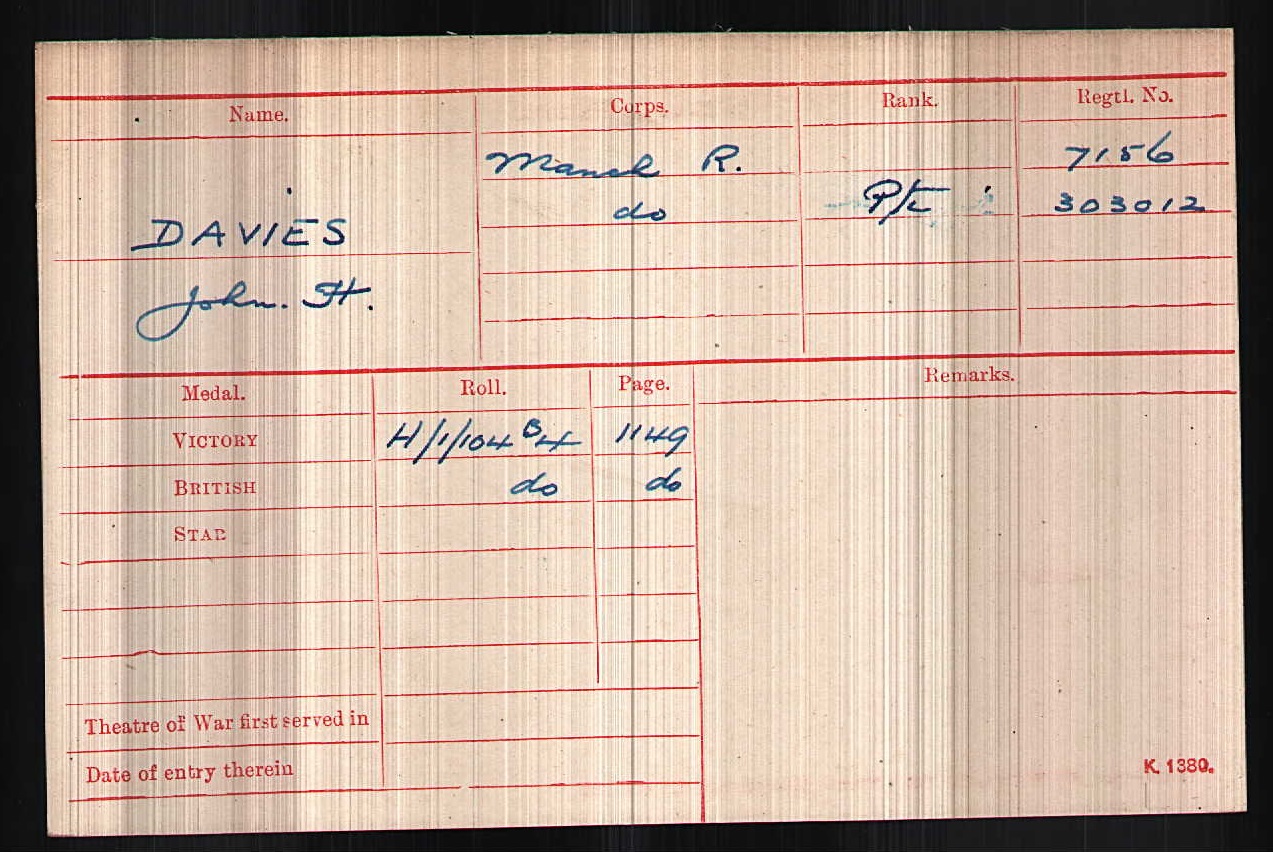 Name. Corps. Rank. Regtl. No.
Manch R. 7156
do Pte 303012
DAVIES
John. H.
Medal. Roll. Page. Remarks.
VICTORY H/1/104 B4 1149
BRITISH do do
STAR
Theatre of War first served in
Date of entry therein
K. 1380.